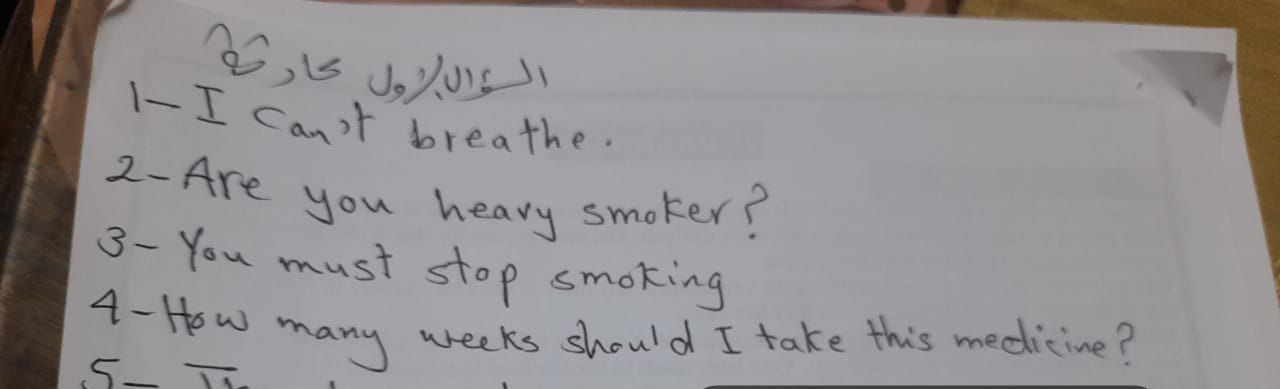 السؤال الأول
1- I can't breathe.
2- Are you heavy smoker?
3- You must stop smoking
4- How many weeks should I take this medicine?
5-